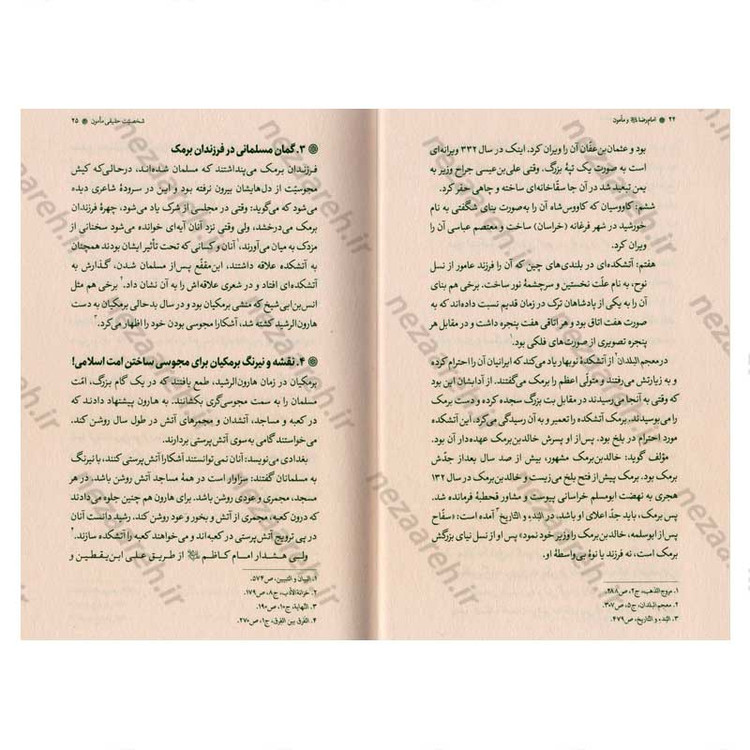 ۲۴ ● امام رضا و مأمون
بود و عثمان‌بن‌عفّان آن را ویران کرد. اینک در سال ۳۳۲ ویرانه‌ای
است به صورت یک تپهٔ بزرگ. وقتی علی‌بن‌عیسی جراح وزیر به
یمن تبعید شد در آن جا سقّاخانه‌ای ساخته و چاهی حفر کرد.
ششم: کاووسیان که کاووس‌شاه آن را به‌صورت بنای شگفتی به نام
خورشید در شهر فرغانه (خراسان) ساخت و معتصم عباسی آن را
ویران کرد.
هفتم: آتشکده‌ای در بلندی‌های چین که آن را فرزند عامور از نسل
نوح، به نام علّت نخستین و سرچشمهٔ نور ساخت. برخی هم بنای
آن را به یکی از پادشاهان ترک در زمان قدیم نسبت داده‌اند که به
صورت هفت اتاق بود و هر اتاقی هفت پنجره داشت و در مقابل هر
پنجره تصویری از صورت‌های فلکی بود.۱
در معجم البلدان۲ از آتشکدهٔ نوبهار یاد می‌کند که ایرانیان آن را احترام کرده
و به زیارتش می‌رفتند و متولّی اعظم را برمک می‌گفتند. از آدابشان این بود
که وقتی به آنجا می‌رسیدند در مقابل بت بزرگ سجده کرده و دست برمک
را می‌بوسیدند. برمک آتشکده را تعمیر و به آن رسیدگی می‌کرد، این آتشکده
مورد احترام در بلخ بود. پس از او پسرش خالدبن‌برمک عهده‌دار آن بود.
مؤلف گوید: خالدبن‌برمک مشهور، بیش از صد سال بعداز جدّش
برمک بود. برمک پیش از فتح بلخ می‌زیست و خالدبن‌برمک در سال ۱۳۲
هجری به نهضت ابومسلم خراسانی پیوست و مشاور قحطبهٔ فرمانده شد.
پس برمک، باید جدّ اعلای او باشد. در البَدء و التّاریخ۳ آمده است: «سفّاح
پس از ابوسلمه، خالدبن‌برمک را وزیر خود نمود» پس او از نسل نیای بزرگش
برمک است، نه فرزند یا نوهٔ بی‌واسطهٔ او.
۱. مروج الذهب، ج۲، ص۲۸۸.
۲. معجم البلدان، ج۵، ص۳۰۷.
۳. البَدء و التّاریخ، ص۴۷۹.
شخصیّت حقیقی مأمون ● ۲۵
۳. گمان مسلمانی در فرزندان برمک
فرزندان برمک می‌پنداشتند که مسلمان شده‌اند، درحالی‌که کیش
مجوسیّت از دل‌هایشان بیرون نرفته بود و این در سرودهٔ شاعری دیده
می‌شود که می‌گوید: وقتی در مجلسی از شرک یاد می‌شود، چهرهٔ فرزندان
برمک می‌درخشد، ولی وقتی نزد آنان آیه‌ای خوانده می‌شود سخنانی از
مزدک به میان می‌آورند.۱ آنان و کسانی که تحت تأثیر ایشان بودند همچنان
به آتشکده علاقه داشتند، ابن‌مقفّع پس‌از مسلمان شدن، گذارش به
آتشکده‌ای افتاد و در شعری علاقه‌اش را به آن نشان داد.۲ برخی هم مثل
انس‌بن‌ابی‌شیخ که منشی برمکیان بود و در سال بدحالی برمکیان به دست
هارون‌الرشید کشته شد، آشکارا مجوسی بودن خود را اظهار می‌کرد.۳
۴. نقشه و نیرنگ برمکیان برای مجوسی ساختن امت اسلامی!
برمکیان در زمان هارون‌الرشید، طمع یافتند که در یک گام بزرگ، امّت
مسلمان را به سمت مجوسی‌گری بکشانند. به هارون پیشنهاد دادند که
در کعبه و مساجد، آتشدان و مجمرهای آتش در طول سال روشن کند.
می‌خواستند گامی به‌سوی آتش‌پرستی بردارند.
بغدادی می‌نویسد: آنان نمی‌توانستند آشکارا آتش‌پرستی کنند، با نیرنگ
به مسلمانان گفتند: سزاوار است در همهٔ مساجد آتش روشن باشد. در هر
مسجد، مجمری و عودی روشن باشد. برای هارون هم چنین جلوه می‌دادند
که درون کعبه، مجمری از آتش و بخور و عود روشن کند. رشید دانست آنان
در پی ترویج آتش‌پرستی در کعبه‌اند و می‌خواهند کعبه را آتشکده سازند.۴
ولی هشدار امام کاظم از طریق علی ابن‌یقطین و
۱. البیان و التبیین، ص۵۷۴.
۲. خزانة الأدب، ج۸، ص۱۷۹.
۳. النهایه، ج۱۰، ص۱۹۰.
۴. الفَرق بین الفِرَق، ج۱، ص۲۷۰.
nezaareh.ir